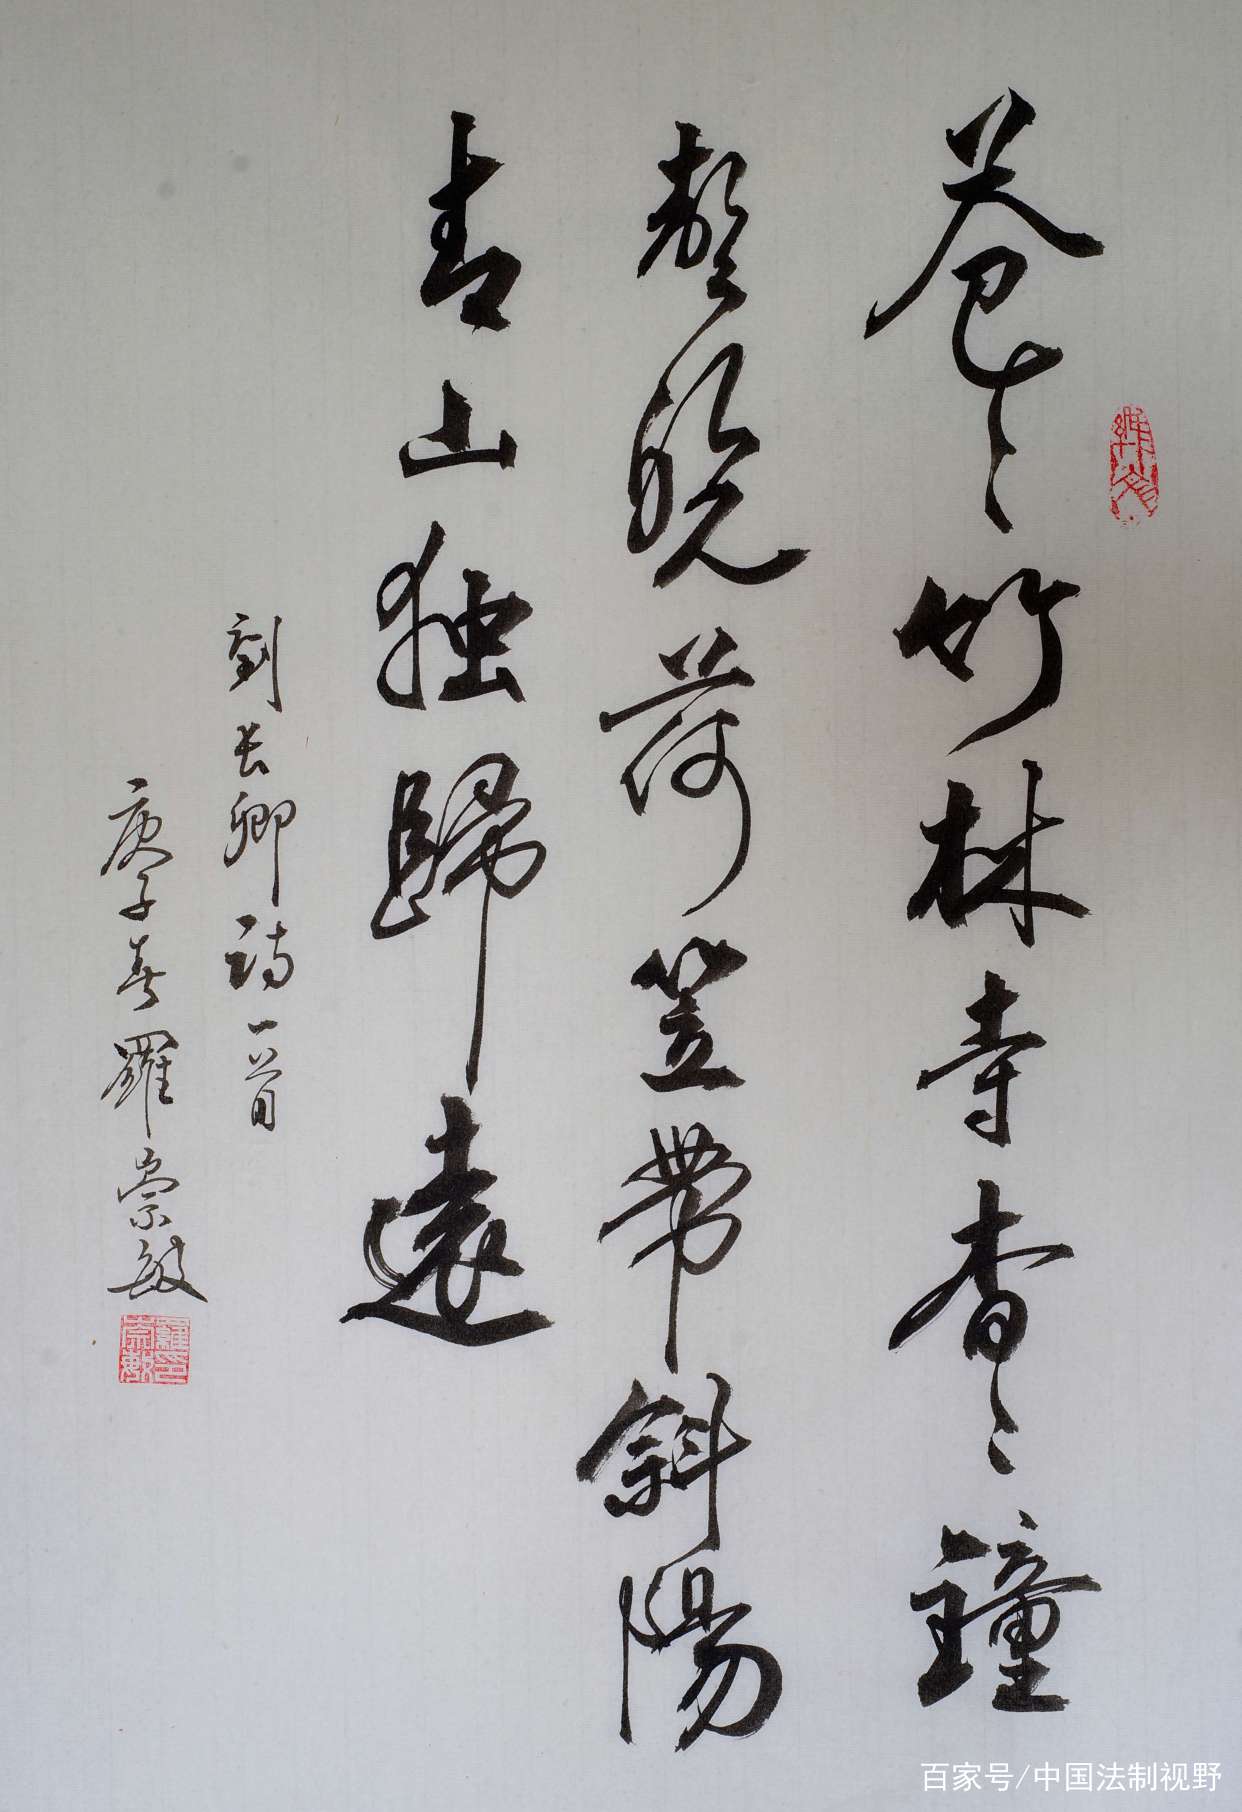 苍々竹林寺杳々鐘
聲晚荷笠带斜陽
青山独歸遠
劉長卿詩一首
庚子春羅崇敏
羅崇敏印
百家号/中国法制视野